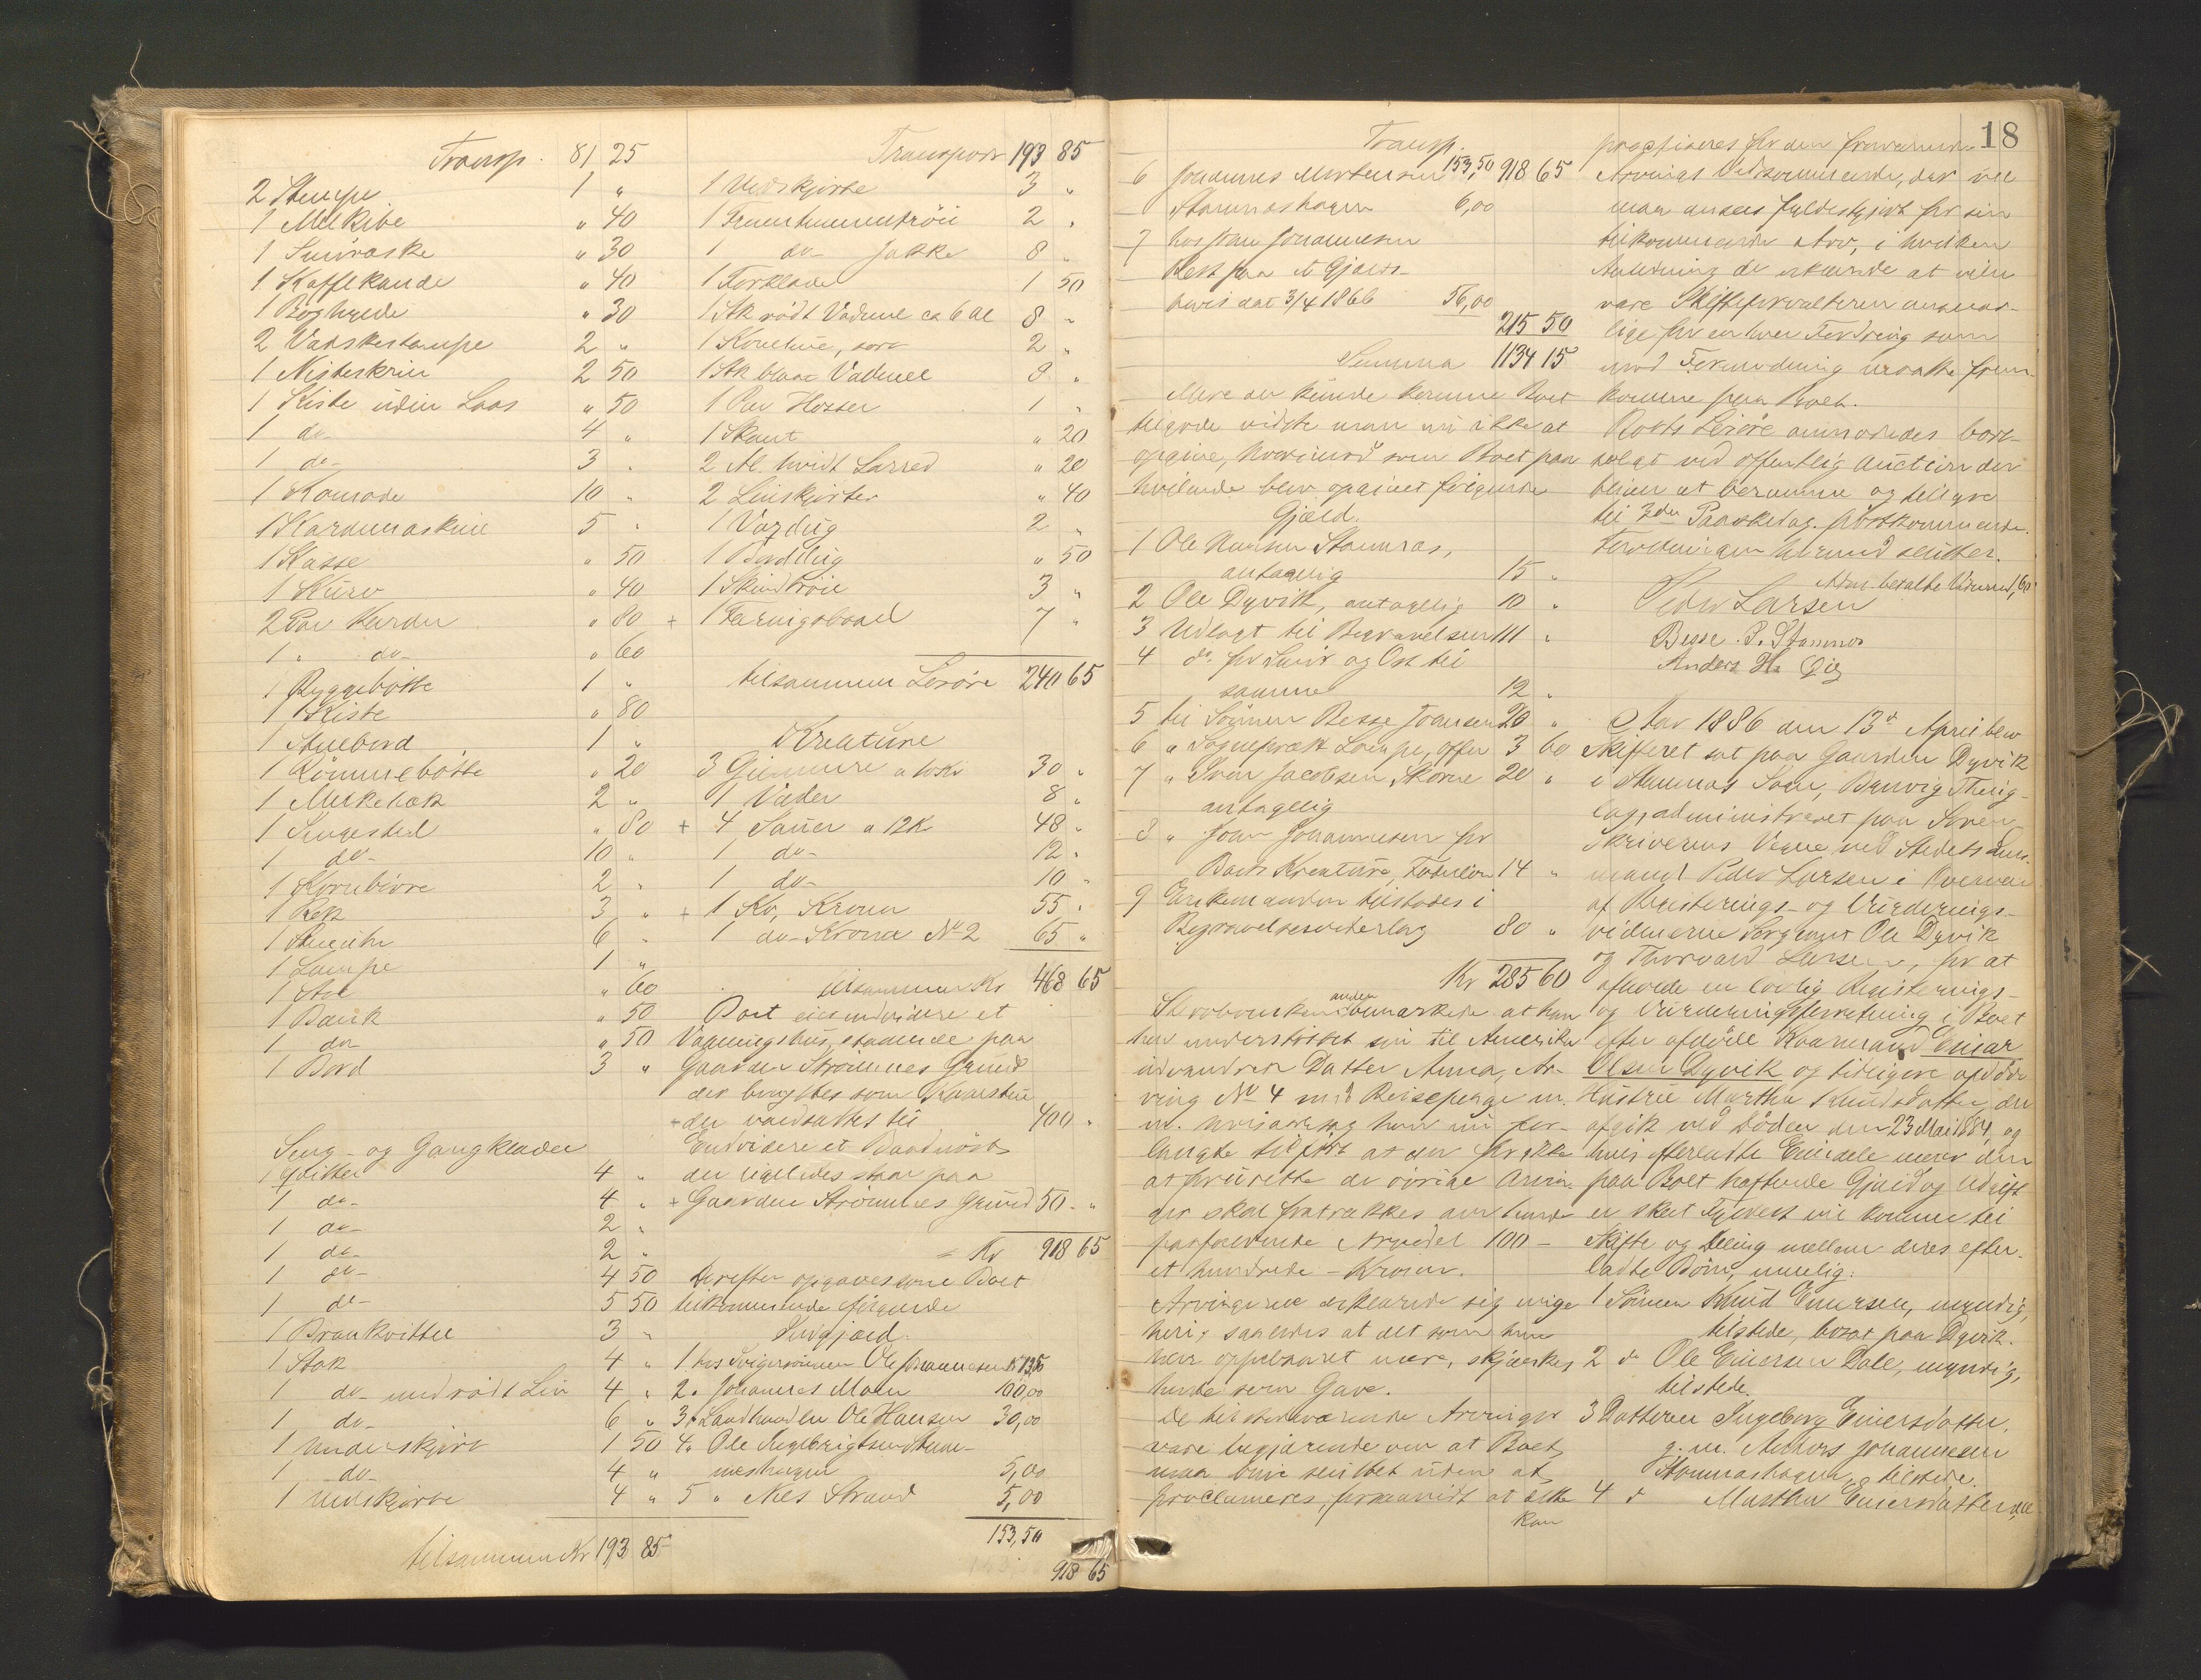 Transp. 81 25
2 Stampe 1 "
1 Melkibe " 40
1 Smöraske " 30
1 Kaffekande " 40
1 Boghylde " 30
2 Vadskestampe 2 "
1 Nisteskrin 2 50
1 Kiste uden Laas " 50
1 do- 4 "
1 do- 3 "
1 Komode 10 "
1 Kardemaskine 5 "
1 Kasse " 50
1 Kurv " 40
2 Par Karder " 80
1 " do- " 60
1 Ryggebötte 1 "
1 Kiste " 80
1 Stuebord 1 "
1 Römmebötte " 20
1 Melkehak 2 "
1 Sengested " 80
1 do- 10 "
1 Kornbörre 2 "
1 Rok 3 "
1 Stueuhr 6 "
1 Lampe 1 "
1 Stol " 60
1 Bænk " 50
1 do " 50
1 Bord 3 "
Seng- og Gangklæder
1 Qvittel 4 "
1 do- 4 "
1 do- 2 "
1 do- 2 "
1 do- 4 50
1 do- 5 50
1 Brankvittel 3 "
1 Stak 4 "
1 do- med rödt Liv 4 "
1 do- 6 "
1 Underskjört 1 50
1 do- 4 "
1 Uldskjorte 4 "
tilsammen Kr 193 85
Transport 193 85
1 Uldskjorte 3 "
1 Fruentimmertröie 2 "
1 do- Jakke 8 "
1 Forklæde 1 50
1 Stk rödt Vadmel ca 6 Al 8 "
1 Konelue, sort 2 "
1 Stk blaat Vadmel 8 "
1 Par Hoser 1 "
1 Skaut " 20
2 Al. hvidt Lærred " 20
2 Linskjorter " 40
1 Voxdug 2 "
1 Borddug " 50
1 Skindtröie 3 "
+ 1 Færingsbaad 7 "
tilsammen Lösöre 240 65
Kreature
3 Gimmere a 10 Kr 30 "
1 Væder 8 "
+ 4 Sauer a 12 Kr 48 "
1 do- 12 "
1 do- 10 "
+ 1 Ko, Kronen 55 "
1 do- Krona No 2 65 "
tilsammen Kr 468 65
Boet eies endvidere et
Vaaningshus, staaende paa
Gaarden Strömnes Grund
der benyttes som Kaarstue
+ der værdsattes til 400 "
Endvidere et Baadnöst
der ligeledes staar paa
+ Gaarden Strömnes Grund 50 "
= Kr 918 65
Derefter opgaves som Boet
tilkommende fölgende
Indgjæld.
1 hos Svigersönnen Ole Johannesen 13,50
2 " Johannes Moen 100,00
3 " Landhandler Ole Hansen 30,00
4 " Ole Ingebrigtsen Stam-
neshagen 5,00
5 " Nils Strand 5,00
153,50
918 65
18
Transp. 153,50 918 65
6 Johannes Mortensen
Stamneshagen 6,00
7 hos Joan Johannesen
Rest paa et Gjælds-
bevis dat 3/4 1866 56,00
215 50
Summa 1134 15
Mere der kunde komme Boet
tilgode vidste man nu ikke at
opgive, hvorimod som Boet paa
hvilende blev opgivet fölgende
Gjæld.
1 Ole Hansen Stamnæs,
antagelig 15 "
2 Ole Dyvik, antagelig 10 "
3 Udlagt til Begravelsen 111 "
4 do. for Smör og Ost til
samme 12 "
5 til Sönnen Besse Joansen 20 "
6 " Sogneprest Lampe, offer 3 60
7 " Iver Jacobsen Skorve 20 "
antagelig
8 " Joan Johannesen for
Boets Kreature, Foderlön 14 "
9 Enkemanden tilstodes i
Begravelsesvederlag 80 "
Kr 285 60
Stervboenkemanden bemærkede at han
har understöttet sin til Amerika
udvandrede Datter Anna, Ar-
ving No 4 med Reisepenge m.
m. hvisaarsag han nu for-
langte tilfört at der for ikke
at forurette de övrige Arvin-
ger skal fratrækkes den hende
paafaldende Arvedel 100 -
et hundrede - Kroner.
Arvingerne erklærede sig enige
heri, saaledes at det som hun
har oppebaaret mere, skjænkes
hende som Gave.
De tilstedeværende Arvinger
vare begjærende om at Boet
maa blive sluttet uden at
proclameres, forsaavidt at dette
kan
practiseres for den fraværende
Arvings Vedkommende, der vel
maa ansees fyldestgjort for sin
tilkommende Arv, i hvilken
Anledning de erklærede at ville
være Skifteforvalteren ansvar-
lige for enhver Fordring som
mod Formodning maatte frem-
komme paa Boet.
Boets Lösöre anmodedes bort-
solgt ved offentlig Auction der
bliver at beramme og tillyse
til 3die Paaskedag förstkommende.
Forretningen hermed sluttet.
Man betalte Vidnerne 1,60
Peder Larsen
Besse P. Stamnes
Anders H.
Aar 1886 den 13de April blev
Skifteret sat paa Gaarden Dyvik
i Stamnæs Sogn, Bruvig Thing-
lag, administreret paa Soren
Skriverens Vegne ved Stedets Lens-
mand Peder Larsen i Overvær
af Registerings- og Vurderings-
vidnerne Sergeant Ole Dyvik
og Thorvald Larsen, for at
afholde en lovlig Registerings-
og Vurderingsforretning i Boet
efter afdöde Kaarmand Einar
Olsen Dyvik og tidligere afdöde
Hustrue Martha Knudsdatter, der
afgik ved Döden den 23 Mai 1884, og
hvis efterladte Eiendele naar den
paa Boet hæftende Gjæld og Udgift
er skeet Fyldest vil komme til
Skifte og Deling mellem deres efter-
ladte Börn, nemlig:
1 Sönnen Knud Einarsen, myndig,
tilstede, bosat paa Dyvik.
2 do Ole Einersen Dale, myndig,
tilstede.
3 Datteren Ingeborg Einersdatter,
g. m. Anders Johannesen
Stamneshagen, tilstede.
4 do Martha Einersdatter,